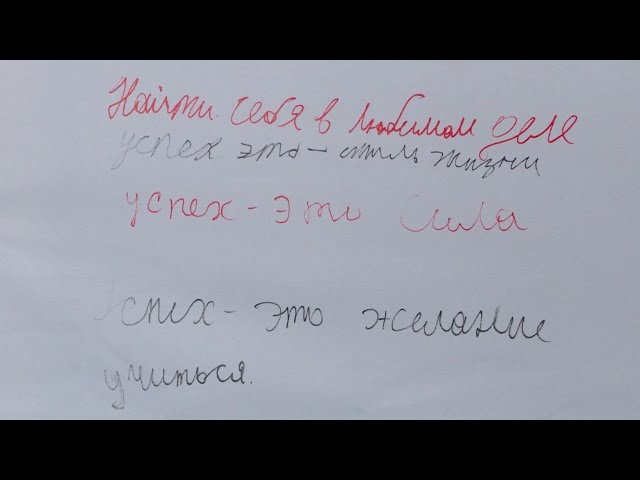 Найти себя в любимом деле
успех это - стиль жизни
успех - это сила
Успех - это желание
учиться.